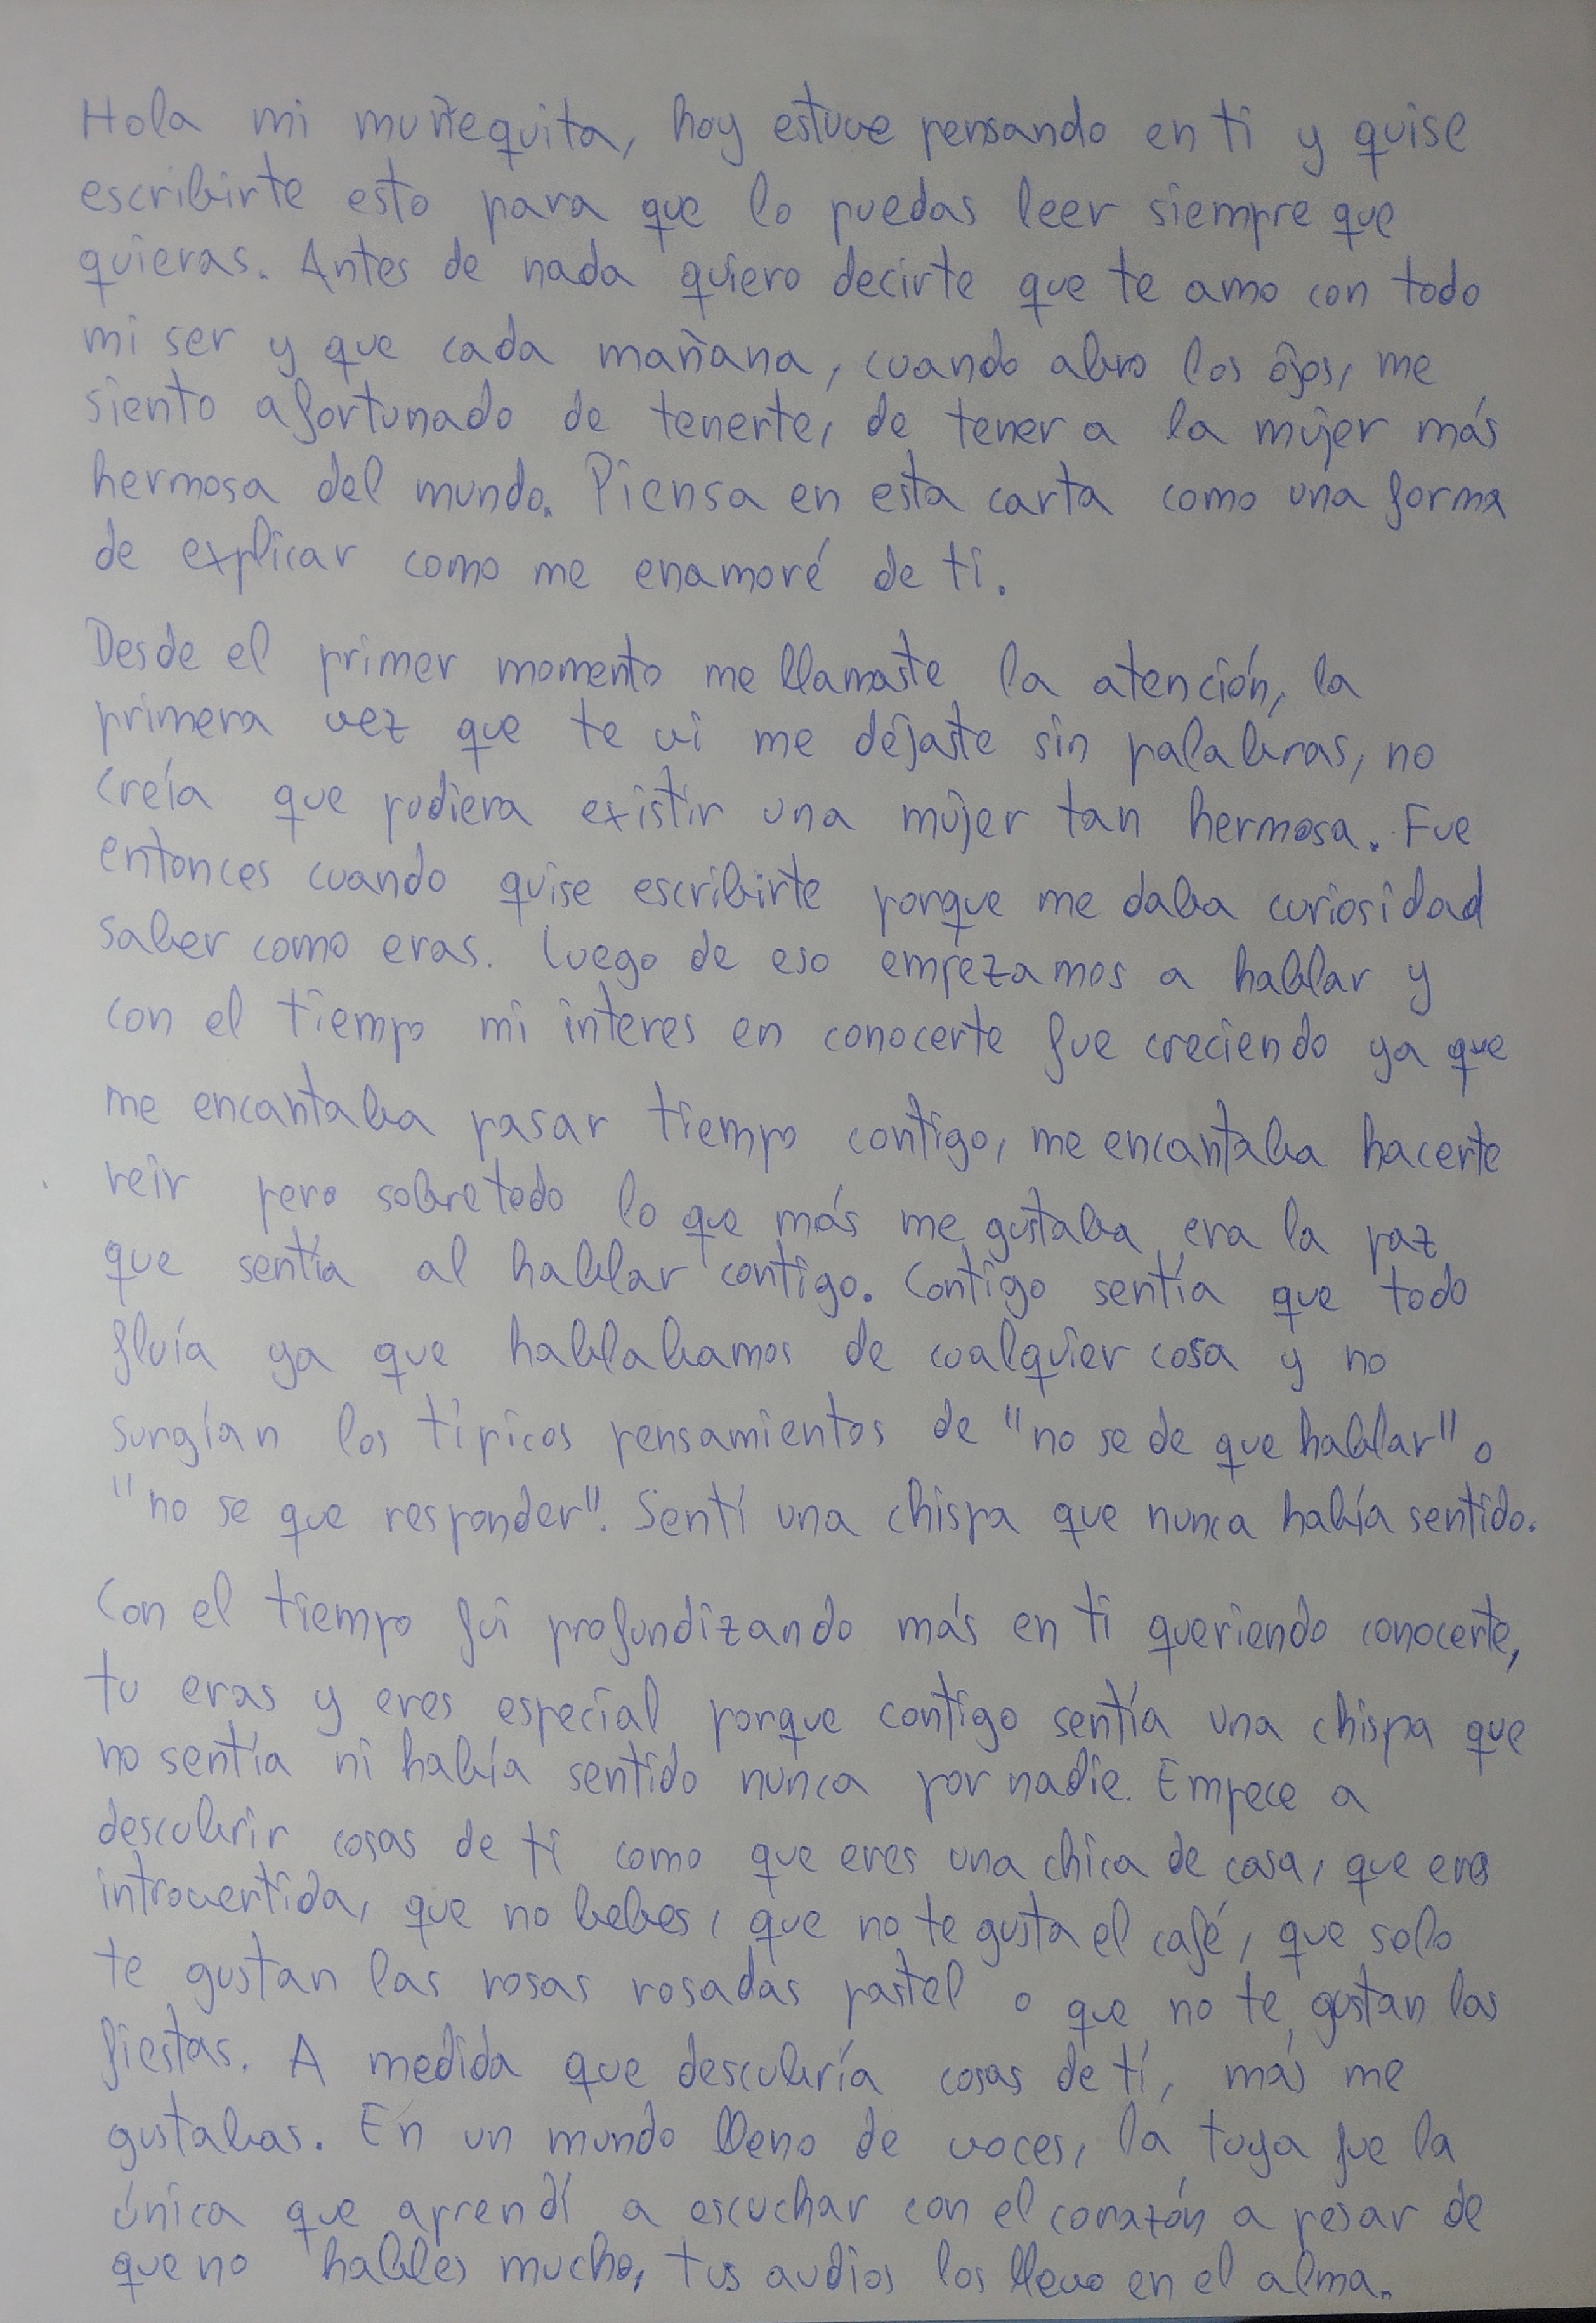 Hola mi muñequita, hoy estuve pensando en ti y quise
escribirte esto para que lo puedas leer siempre que
quieras. Antes de nada quiero decirte que te amo con todo
mi ser y que cada mañana, cuando abro los ojos, me
siento afortunado de tenerte, de tener a la mujer más
hermosa del mundo. Piensa en esta carta como una forma
de explicar como me enamoré de ti.
Desde el primer momento me llamaste la atención, la
primera vez que te vi me dejaste sin palabras, no
creía que pudiera existir una mujer tan hermosa. Fue
entonces cuando quise escribirte porque me daba curiosidad
saber como eras. Luego de eso empezamos a hablar y
con el tiempo mi interes en conocerte fue creciendo ya que
me encantaba pasar tiempo contigo, me encantaba hacerte
reir pero sobretodo lo que más me gustaba era la paz
que sentía al hablar contigo. Contigo sentía que todo
fluía ya que hablabamos de cualquier cosa y no
surgían los típicos pensamientos de "no se de que hablar" o
"no se que responder". Sentí una chispa que nunca había sentido.
Con el tiempo fui profundizando más en ti queriendo conocerte,
tu eras y eres especial porque contigo sentía una chispa que
no sentía ni había sentido nunca por nadie. Empece a
descubrir cosas de ti como que eres una chica de casa, que eres
introvertida, que no bebes, que no te gusta el café, que solo
te gustan las rosas rosadas pastel o que no te gustan las
fiestas. A medida que descubría cosas de tí, más me
gustabas. En un mundo lleno de voces, la tuya fue la
única que aprendí a escuchar con el corazón a pesar de
que no hables mucho, tus audios los llevo en el alma.